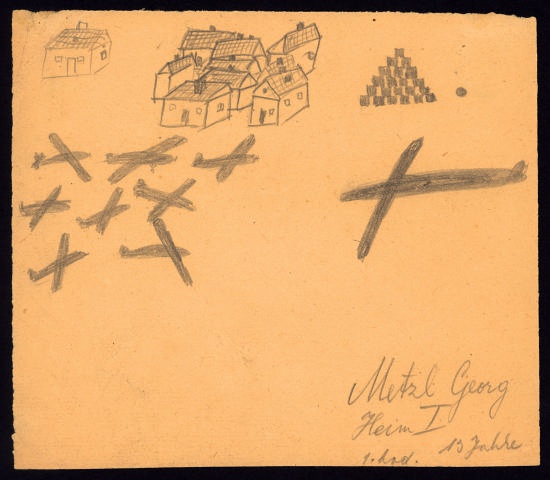 Metzl Georg
Heim I.
1. hod. 13 Jahre